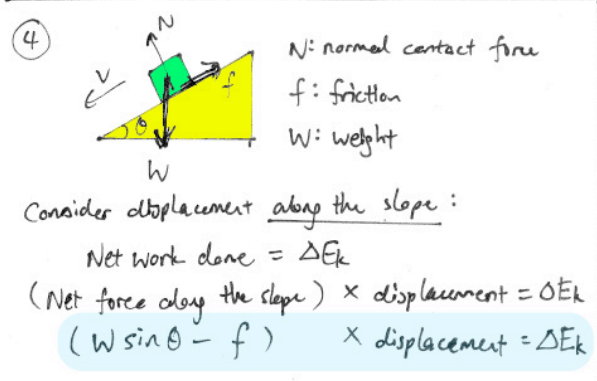 4
N
N: normal contact force
v
f
f: friction
θ
W: weight
W
Consider displacement along the slope :
Net work done = ΔEk
(Net force along the slope) × displacement = ΔEk
(W sin θ - f) × displacement = ΔEk